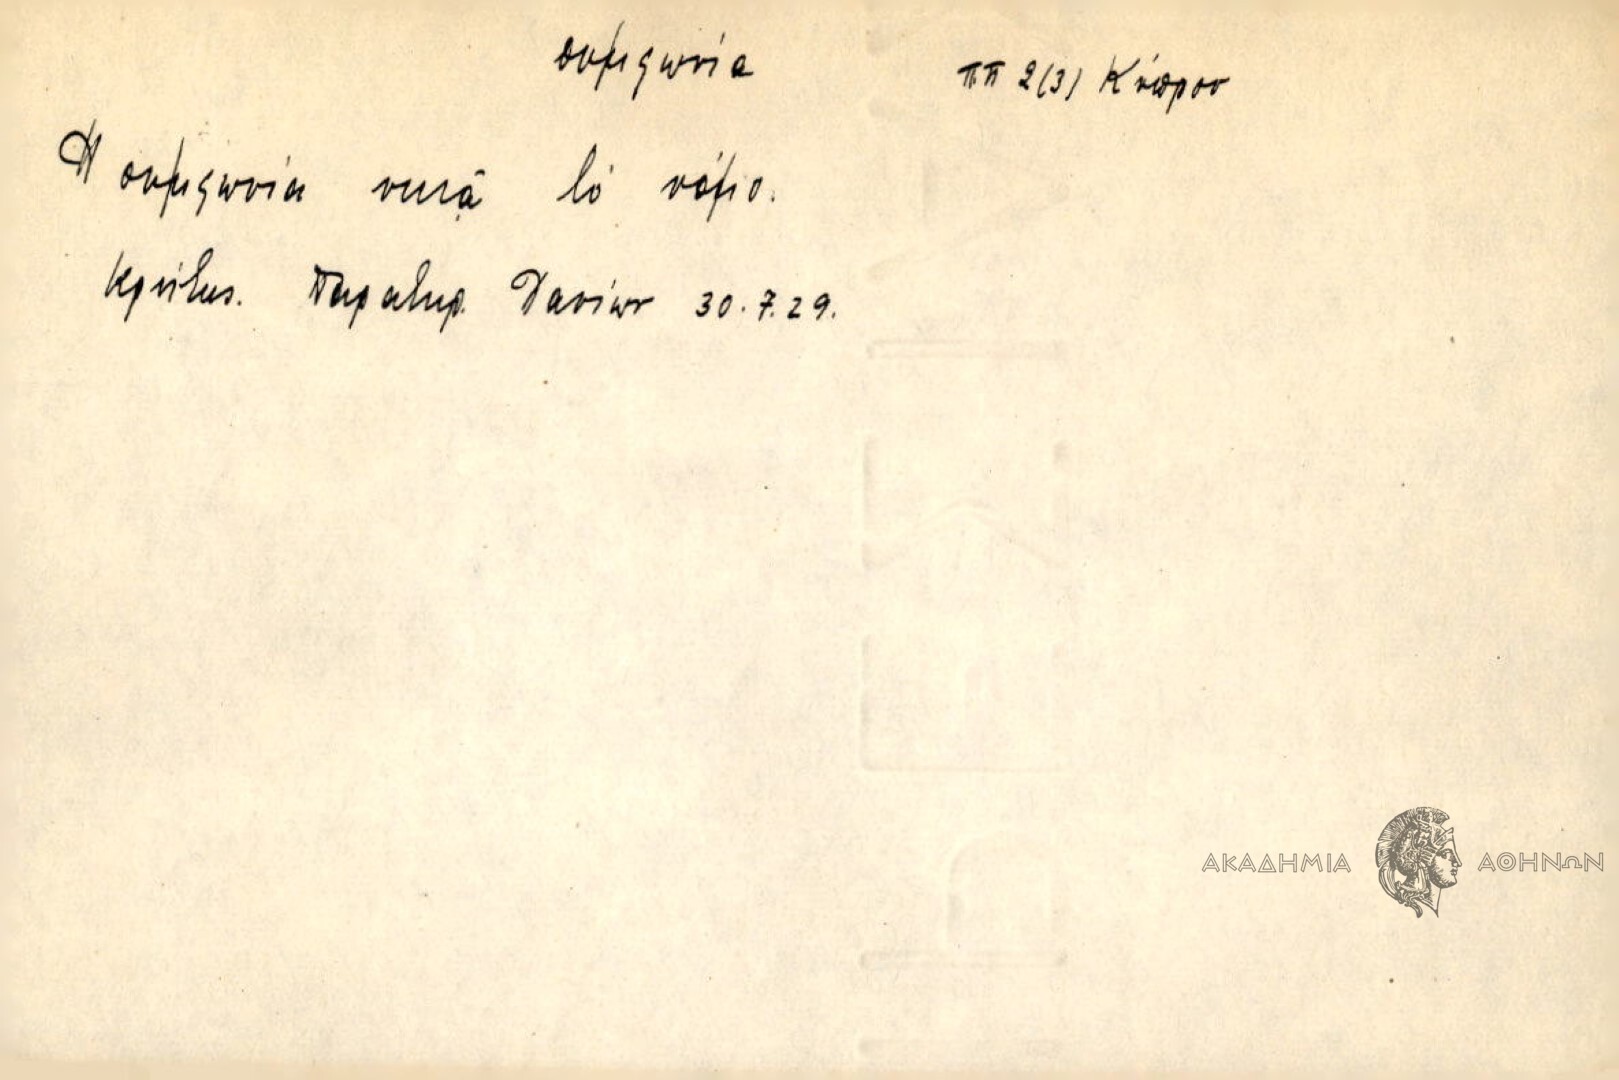 συμφωνία
ΠΠ 2(3) Κύπρου
Ἡ συμφωνία νικᾷ τό νόμο.
Κρήτης. Παρατηρ. Χανίων 30.7.29.
ΑΚΑΔΗΜΙΑ ΑΘΗΝΩΝ